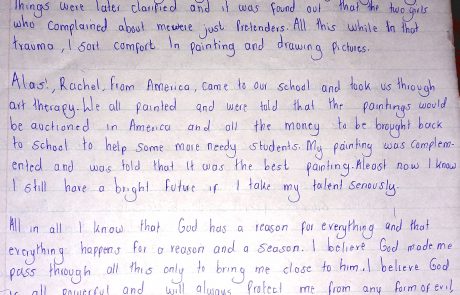 Things were later clarified and it was found out that the two girls
who complained about me were just pretenders. All this while in that
trauma, I sort comfort in painting and drawing pictures.
Alas!, Rachel, from America, came to our school and took us through
art therapy. We all painted and were told that the paintings would
be auctioned in America and all the money to be brought back
to school to help some more needy students. My painting was complem-
ented and was told that it was the best painting. Aleast now I know
I still have a bright future if I take my talent seriously.
All in all I know that God has a reason for everything and that
everything happens for a reason and a season. I believe God made me
pass through all this only to bring me close to him. I believe God
is all powerful and will always protect me from any form of evil,